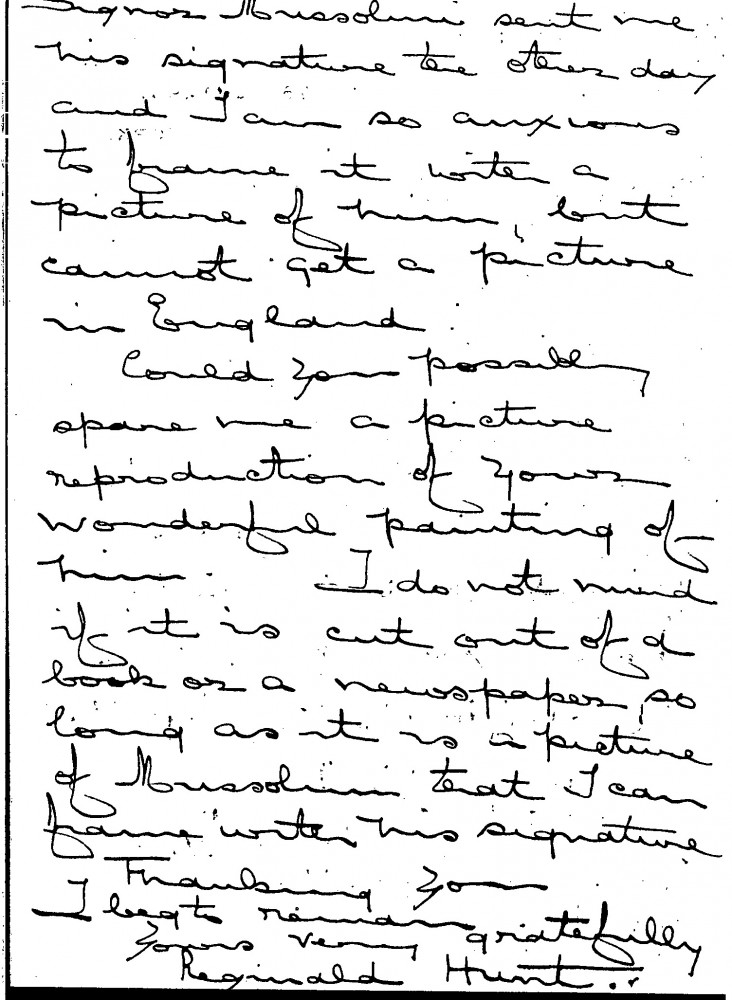 Signor Mussolini sent me
his signature the other day
and I am so anxious
to frame it with a
picture of him, but
cannot get a picture
in England.
Could you possibly
spare me a picture
reproduction of yours
wonderful painting of
him. I do not mind
if it is cut out of a
book or a newspaper so
long as it is a picture
of Mussolini that I can
frame with his signature
Thanking you
I beg to remain gratefully
yours very
Reginald Hunt.